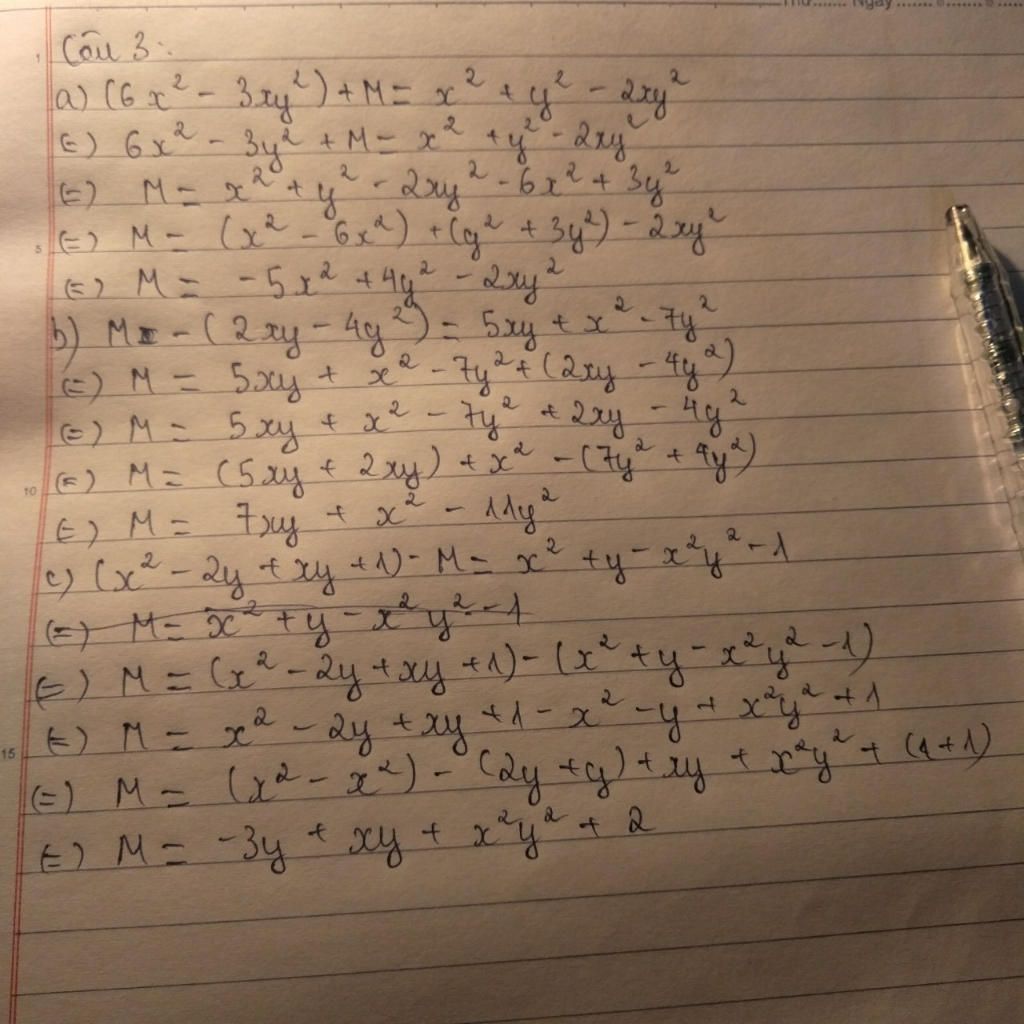 Thứ....... Ngày.......
Câu 3:
a) (6x² - 3xy²) + M = x² + y² - 2xy²
(=) 6x² - 3y² + M = x² + y² - 2xy²
(=) M = x² + y² - 2xy² - 6x² + 3y²
(=) M = (x² - 6x²) + (y² + 3y²) - 2xy²
(=) M = -5x² + 4y² - 2xy²
b) M - (2xy - 4y²) = 5xy + x² - 7y²
(=) M = 5xy + x² - 7y² + (2xy - 4y²)
(=) M = 5xy + x² - 7y² + 2xy - 4y²
(=) M = (5xy + 2xy) + x² - (7y² + 4y²)
(=) M = 7xy + x² - 11y²
c) (x² - 2y + xy + 1) - M = x² + y - x²y² - 1
(=) M = x² + y - x²y² - 1
(=) M = (x² - 2y + xy + 1) - (x² + y - x²y² - 1)
(=) M = x² - 2y + xy + 1 - x² - y + x²y² + 1
(=) M = (x² - x²) - (2y + y) + xy + x²y² + (1 + 1)
(=) M = -3y + xy + x²y² + 2
1
5
10
15